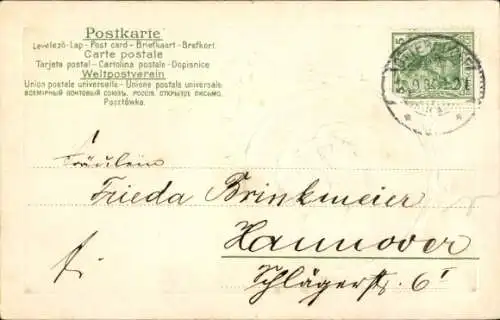 Postkarte
Levelező-Lap - Post card - Briefkaart - Brefkort
Carte postale
Tarjeta postal - Cartolina postale - Dopisnice
Weltpostverein
Union postale universelle - Unione postale universale
ВСЕМІРНЫЙ ПОЧТОВЫЙ СОЮЗЪ. РОССІЯ. ОТКРЫТОЕ ПИСЬМО.
Pocztówka.
Fräulein
Frieda Brinkmeier
Hannover
Schlägerst. 6 I